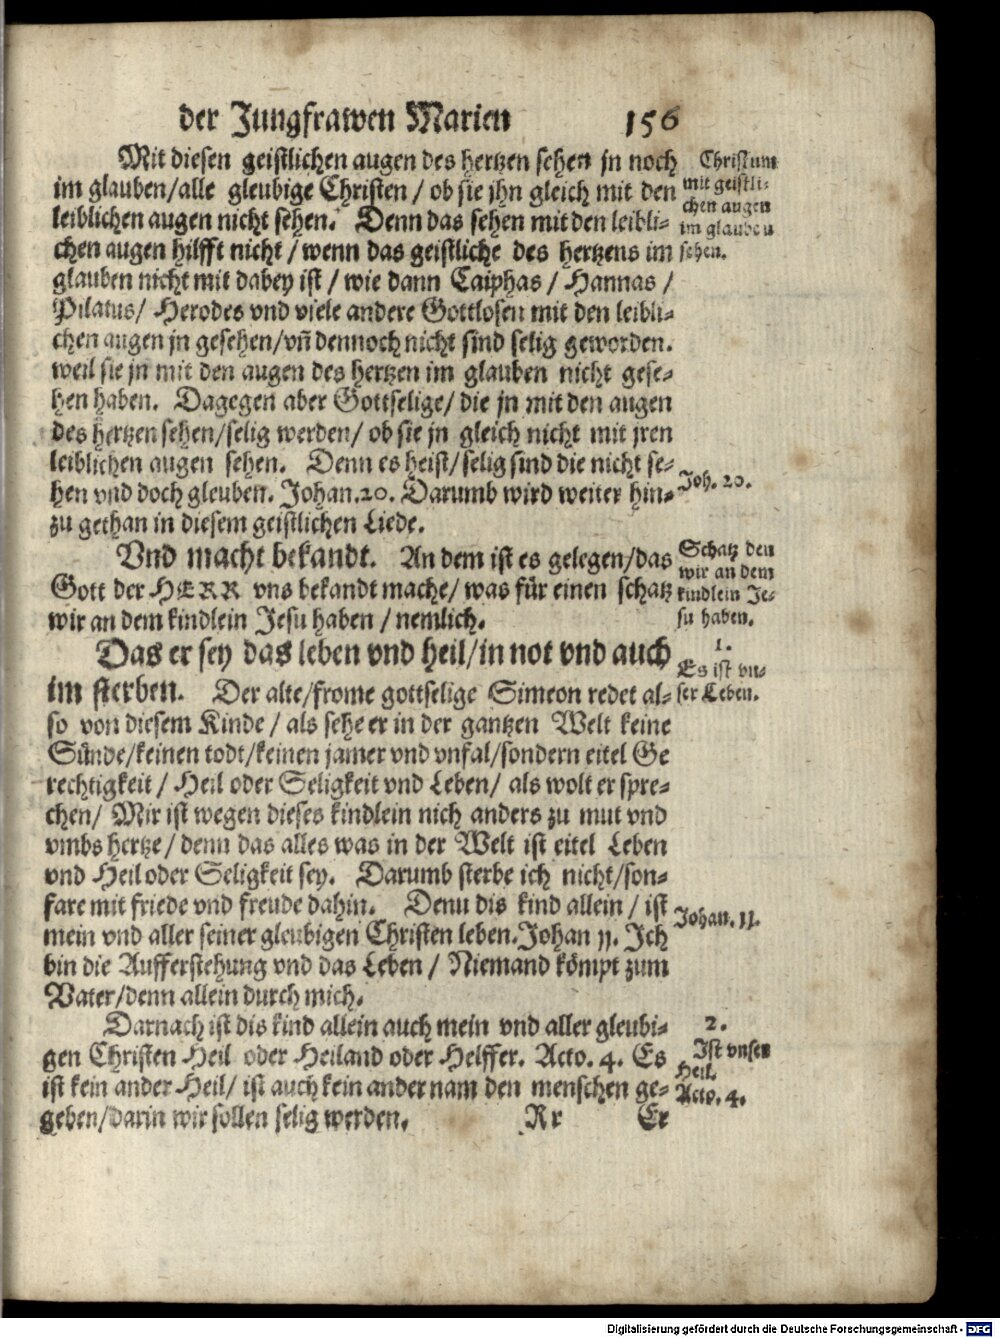 der Jungfrawen Marien 156
Mit diesen geistlichen augen des hertzen sehen jn noch
im glauben/alle gleubige Christen / ob sie jhn gleich mit den
leiblichen augen nicht sehen. Denn das sehen mit den leibli-
chen augen hilfft nicht / wenn das geistliche des hertzens im
glauben nicht mit dabey ist / wie dann Caiphas / Hannas /
Pilatus/ Herodes vnd viele andere Gottlosen mit den leibli-
chen augen jn gesehen/vñ dennoch nicht sind selig geworden.
weil sie jn mit den augen des hertzen im glauben nicht gese-
hen haben. Dagegen aber Gottselige/ die jn mit den augen
des hertzen sehen/selig werden/ ob sie jn gleich nicht mit jren
leiblichen augen sehen. Denn es heist/selig sind die nicht se-
hen vnd doch gleuben. Johan.20. Darumb wird weiter hin-
zu gethan in diesem geistlichen Liede.
Vnd macht bekandt. An dem ist es gelegen/das
Gott der HERR vns bekandt mache/ was für einen schatz
wir an dem kindlein Jesu haben / nemlich.
Das er sey das leben vnd heil/in not vnd auch
im sterben. Der alte/frome gottselige Simeon redet al-
so von diesem Kinde / als sehe er in der gantzen Welt keine
Sünde/keinen todt/keinen jamer vnd vnfal/sondern eitel Ge
rechtigkeit / Heil oder Seligkeit vnd Leben/ als wolt er spre-
chen/ Mir ist wegen dieses kindlein nich anders zu mut vnd
vmbs hertze/ denn das alles was in der Welt ist eitel Leben
vnd Heil oder Seligkeit sey. Darumb sterbe ich nicht/son-
fare mit friede vnd freude dahin. Denu dis kind allein / ist
mein vnd aller seiner gleubigen Christen leben.Johan 11. Jch
bin die Aufferstehung vnd das Leben / Niemand kömpt zum
Vater/denn allein durch mich.
Darnach ist dis kind allein auch mein vnd aller gleubi-
gen Christen Heil oder Heiland oder Helffer. Acto. 4. Es
ist kein ander Heil/ ist auch kein ander nam den menschen ge-
geben/darin wir sollen selig werden.
Rr Er
Christum
mit geistli-
chen augen
im glauben
sehen.
Joh. 20.
Schatz den
wir an dem
kindlein Je-
su haben.
1.
Es ist vn-
ser Leben.
Johan. 11.
2.
Ist vnser
Heil.
Acto. 4.
Digitalisierung gefördert durch die Deutsche Forschungsgemeinschaft - DFG